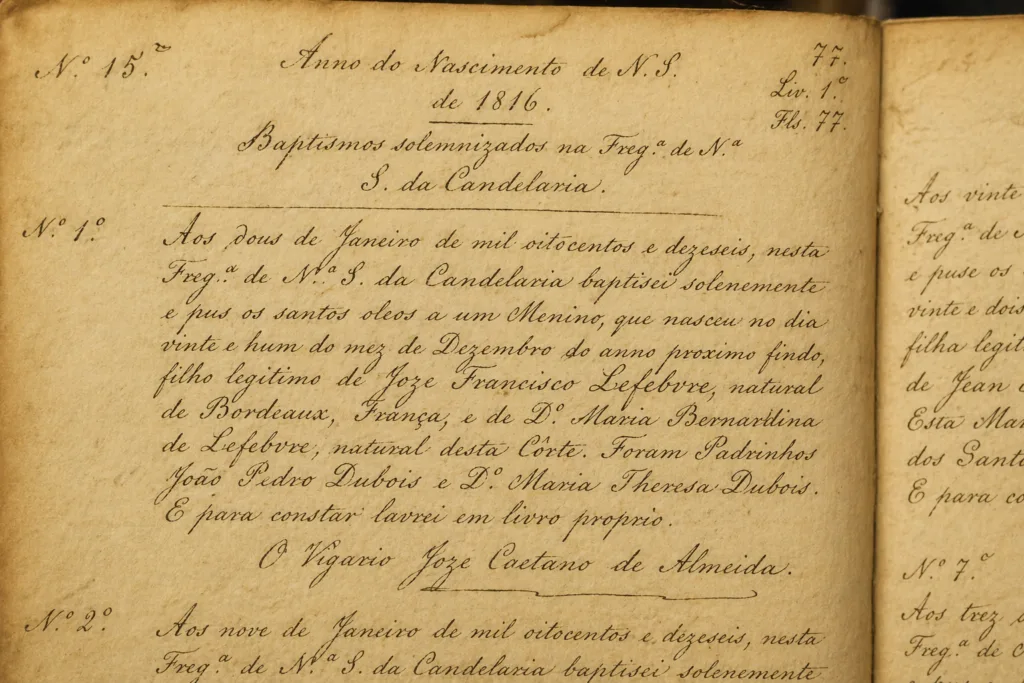 N.º 15.
Anno do Nascimento de N. S.
de 1816.
77.
Liv. 1.º
Fls. 77.
Baptismos solemnizados na Freg.ª de N.ª
S. da Candelaria.
N.º 1.º
Aos dous de Janeiro de mil oitocentos e dezeseis, nesta
Freg.ª de N.ª S. da Candelaria baptisei solenemente
e pus os santos oleos a um Menino, que nasceu no dia
vinte e hum do mez de Dezembro do anno proximo findo,
filho legitimo de Joze Francisco Lefebvre, natural
de Bordeaux, França, e de D.º Maria Bernardina
de Lefebvre, natural desta Côrte. Foram Padrinhos
João Pedro Dubois e D.º Maria Theresa Dubois.
E para constar lavrei em livro proprio.
O Vigario Joze Caetano de Almeida.
N.º 2.º
Aos nove de Janeiro de mil oitocentos e dezeseis, nesta
Freg.ª de N.ª S. da Candelaria baptisei solenemente
Aos vinte
Freg.ª de
e puse os
vinte e dois
filha
de Jean
Esta
dos
E para
N.º 7.º
Aos trez
Freg.ª de